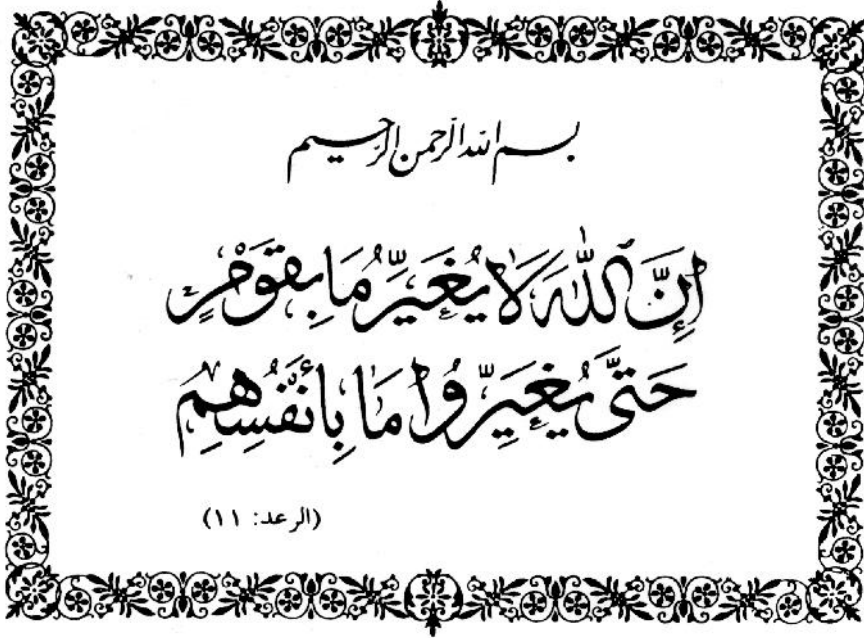 بسم الله الرحمن الرحيم
إِنَّ اللَّهَ لَا يُغَيِّرُ مَا بِقَوْمٍ
حَتَّى يُغَيِّرُوا مَا بِأَنفُسِهِمْ
(الرعد: ١١)